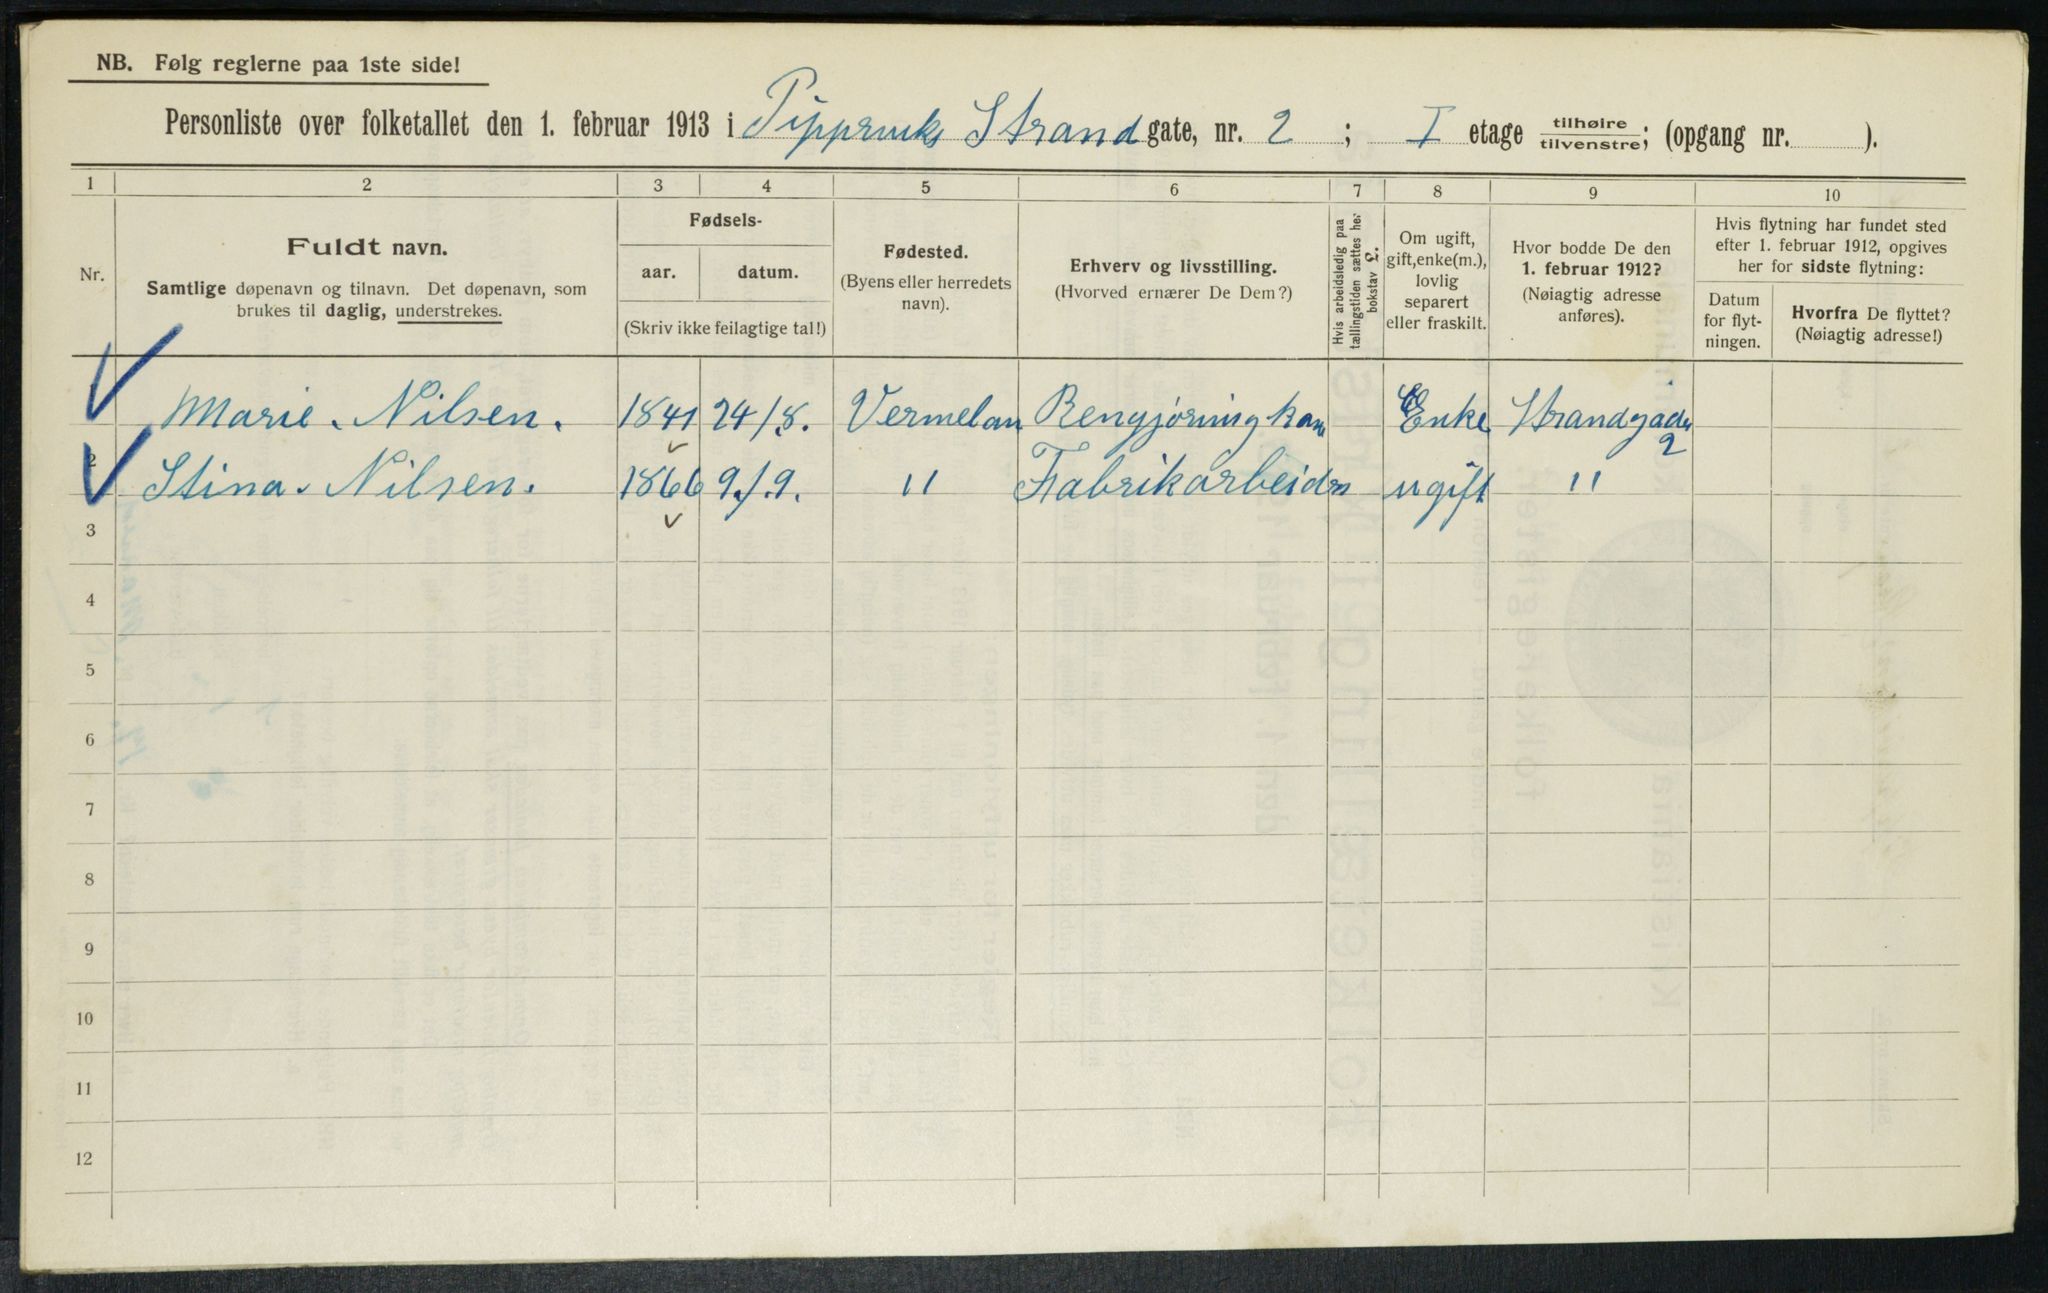 NB. Følg reglerne paa 1ste side!
Personliste over folketallet den 1. februar 1913 i Pipperviks Strand gate, nr. 2 ; I etage tilhøire/tilvenstre; (opgang nr. ).
1 2 3 4 5 6 7 8 9 10
Nr.
Fuldt navn.
Samtlige døpenavn og tilnavn. Det døpenavn, som
brukes til daglig, understrekes.
Fødsels-
aar. datum.
(Skriv ikke feilagtige tal!)
Fødested.
(Byens eller herredets
navn).
Erhverv og livsstilling.
(Hvorved ernærer De Dem?)
Hvis arbeidsledig paa
tællingstiden sættes her
bokstav L.
Om ugift,
gift, enke(m.),
lovlig
separert
eller fraskilt.
Hvor bodde De den
1. februar 1912?
(Nøiagtig adresse
anføres).
Hvis flytning har fundet sted
efter 1. februar 1912, opgives
her for sidste flytning:
Datum
for flyt-
ningen.
Hvorfra De flyttet?
(Nøiagtig adresse!)
Marie Nilsen. 1841 24/8. Vermelan Rengjøringkone Enke Strandgaden 2
2 Stina Nilsen. 1866 9/9. " Fabrikarbeider ugift "
3
4
5
6
7
8
9
10
11
12